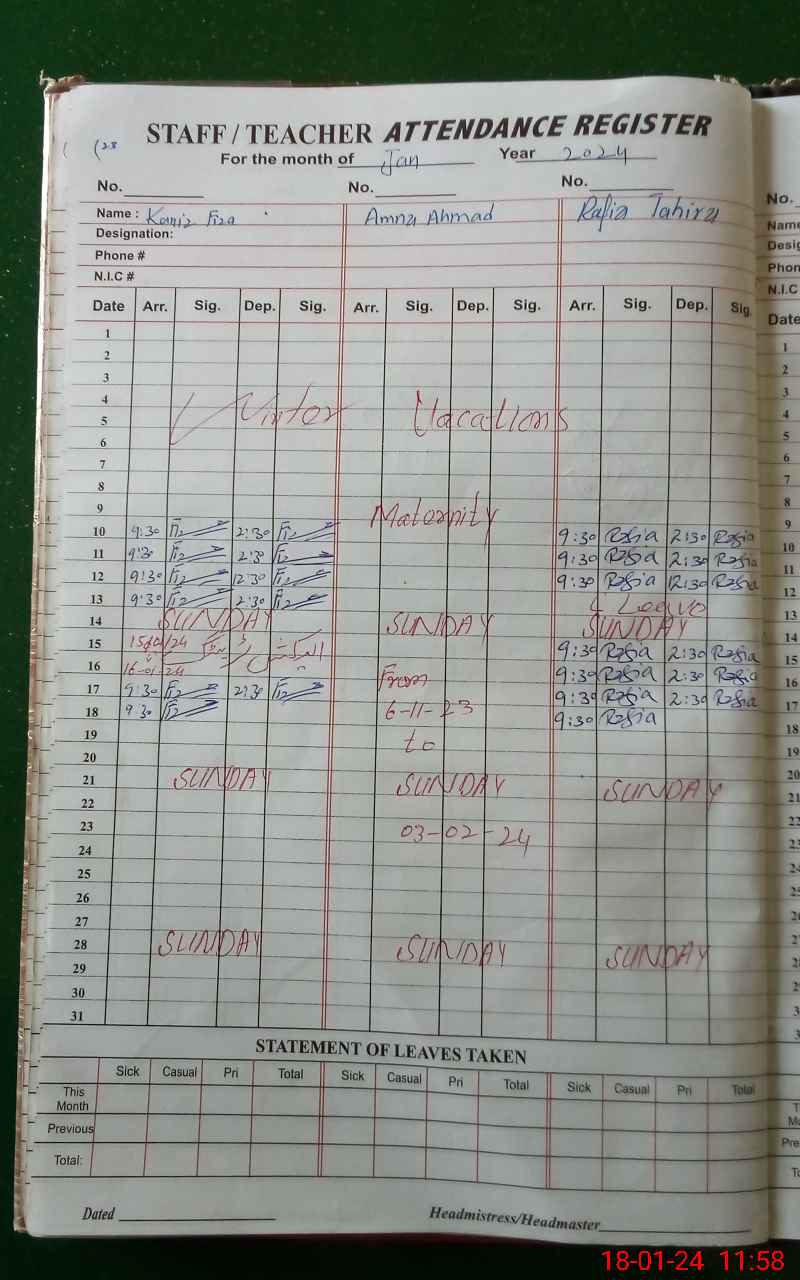 (28
STAFF / TEACHER ATTENDANCE REGISTER
For the month of Jan Year 2024
No. No. No. No.
Name : Kaniz Fiza Amna Ahmad Rafia Tahira Name
Designation: Desig
Phone # Phon
N.I.C # N.I.C
Date Arr. Sig. Dep. Sig. Arr. Sig. Dep. Sig. Arr. Sig. Dep. Sig. Date
1 1
2 2
3 3
4 4
5 Winter Vacations 5
6 6
7 7
8 8
9 Maternity 9
10 9:30 Fiz 2:30 Fiz 9:30 Rafia 2:30 Rafia 10
11 9:30 Fiz 2:30 Fiz 9:30 Rafia 2:30 Rafia 11
12 9:30 Fiz 12:30 Fiz 9:30 Rafia 12:30 Rafia 12
13 9:30 Fiz 2:30 Fiz Leave 13
14 SUNDAY SUNDAY SUNDAY 14
15 9:30 Rafia 2:30 Rafia 15
16 16-01-24 الیکشن ٹریننگ From 9:30 Rafia 2:30 Rafia 16
17 9:30 Fiz 2:30 Fiz 9:30 Rafia 2:30 Rafia 17
18 9:30 Fiz 6-11-23 9:30 Rafia 18
19 to 19
20 20
21 SUNDAY SUNDAY SUNDAY 21
22 22
23 03-02-24 23
24 24
25 25
26 26
27 27
28 SUNDAY SUNDAY SUNDAY 28
29 29
30
31
STATEMENT OF LEAVES TAKEN
Sick Casual Pri Total Sick Casual Pri Total Sick Casual Pri Total
This Month
Previous Pre
Total:
Dated Headmistress/Headmaster
18-01-24 11:58